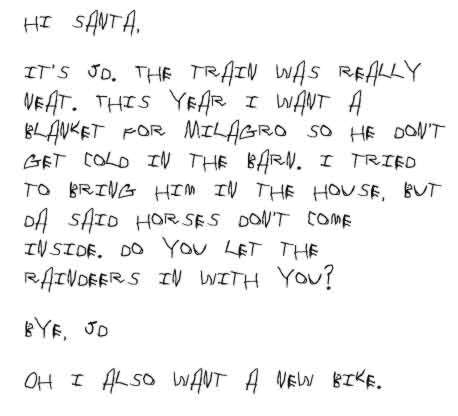 HI SANTA,
IT'S JD. THE TRAIN WAS REALLY
NEAT. THIS YEAR I WANT A
BLANKET FOR MILAGRO SO HE DON'T
GET COLD IN THE BARN. I TRIED
TO BRING HIM IN THE HOUSE, BUT
DA SAID HORSES DON'T COME
INSIDE. DO YOU LET THE
RAINDEERS IN WITH YOU?
BYE, JD
OH I ALSO WANT A NEW BIKE.